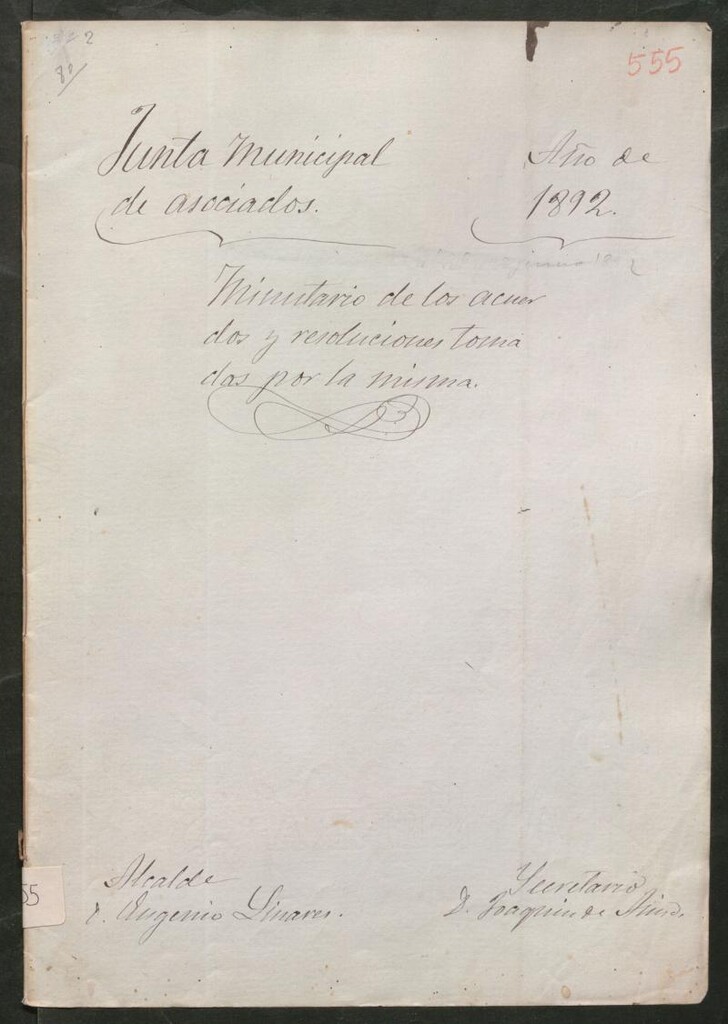 2
80/
555
Junta Municipal
de asociados.
Año de
1892.
Minutario de los acuer
dos y resoluciones toma
das por la misma.
Alcalde
D. Eugenio Linares.
Secretario
D. Joaquin de
55